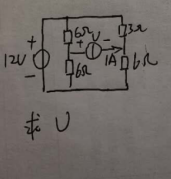 6Ω
3Ω
+ U -
12V
+
-
6Ω
1A
6Ω
求 U